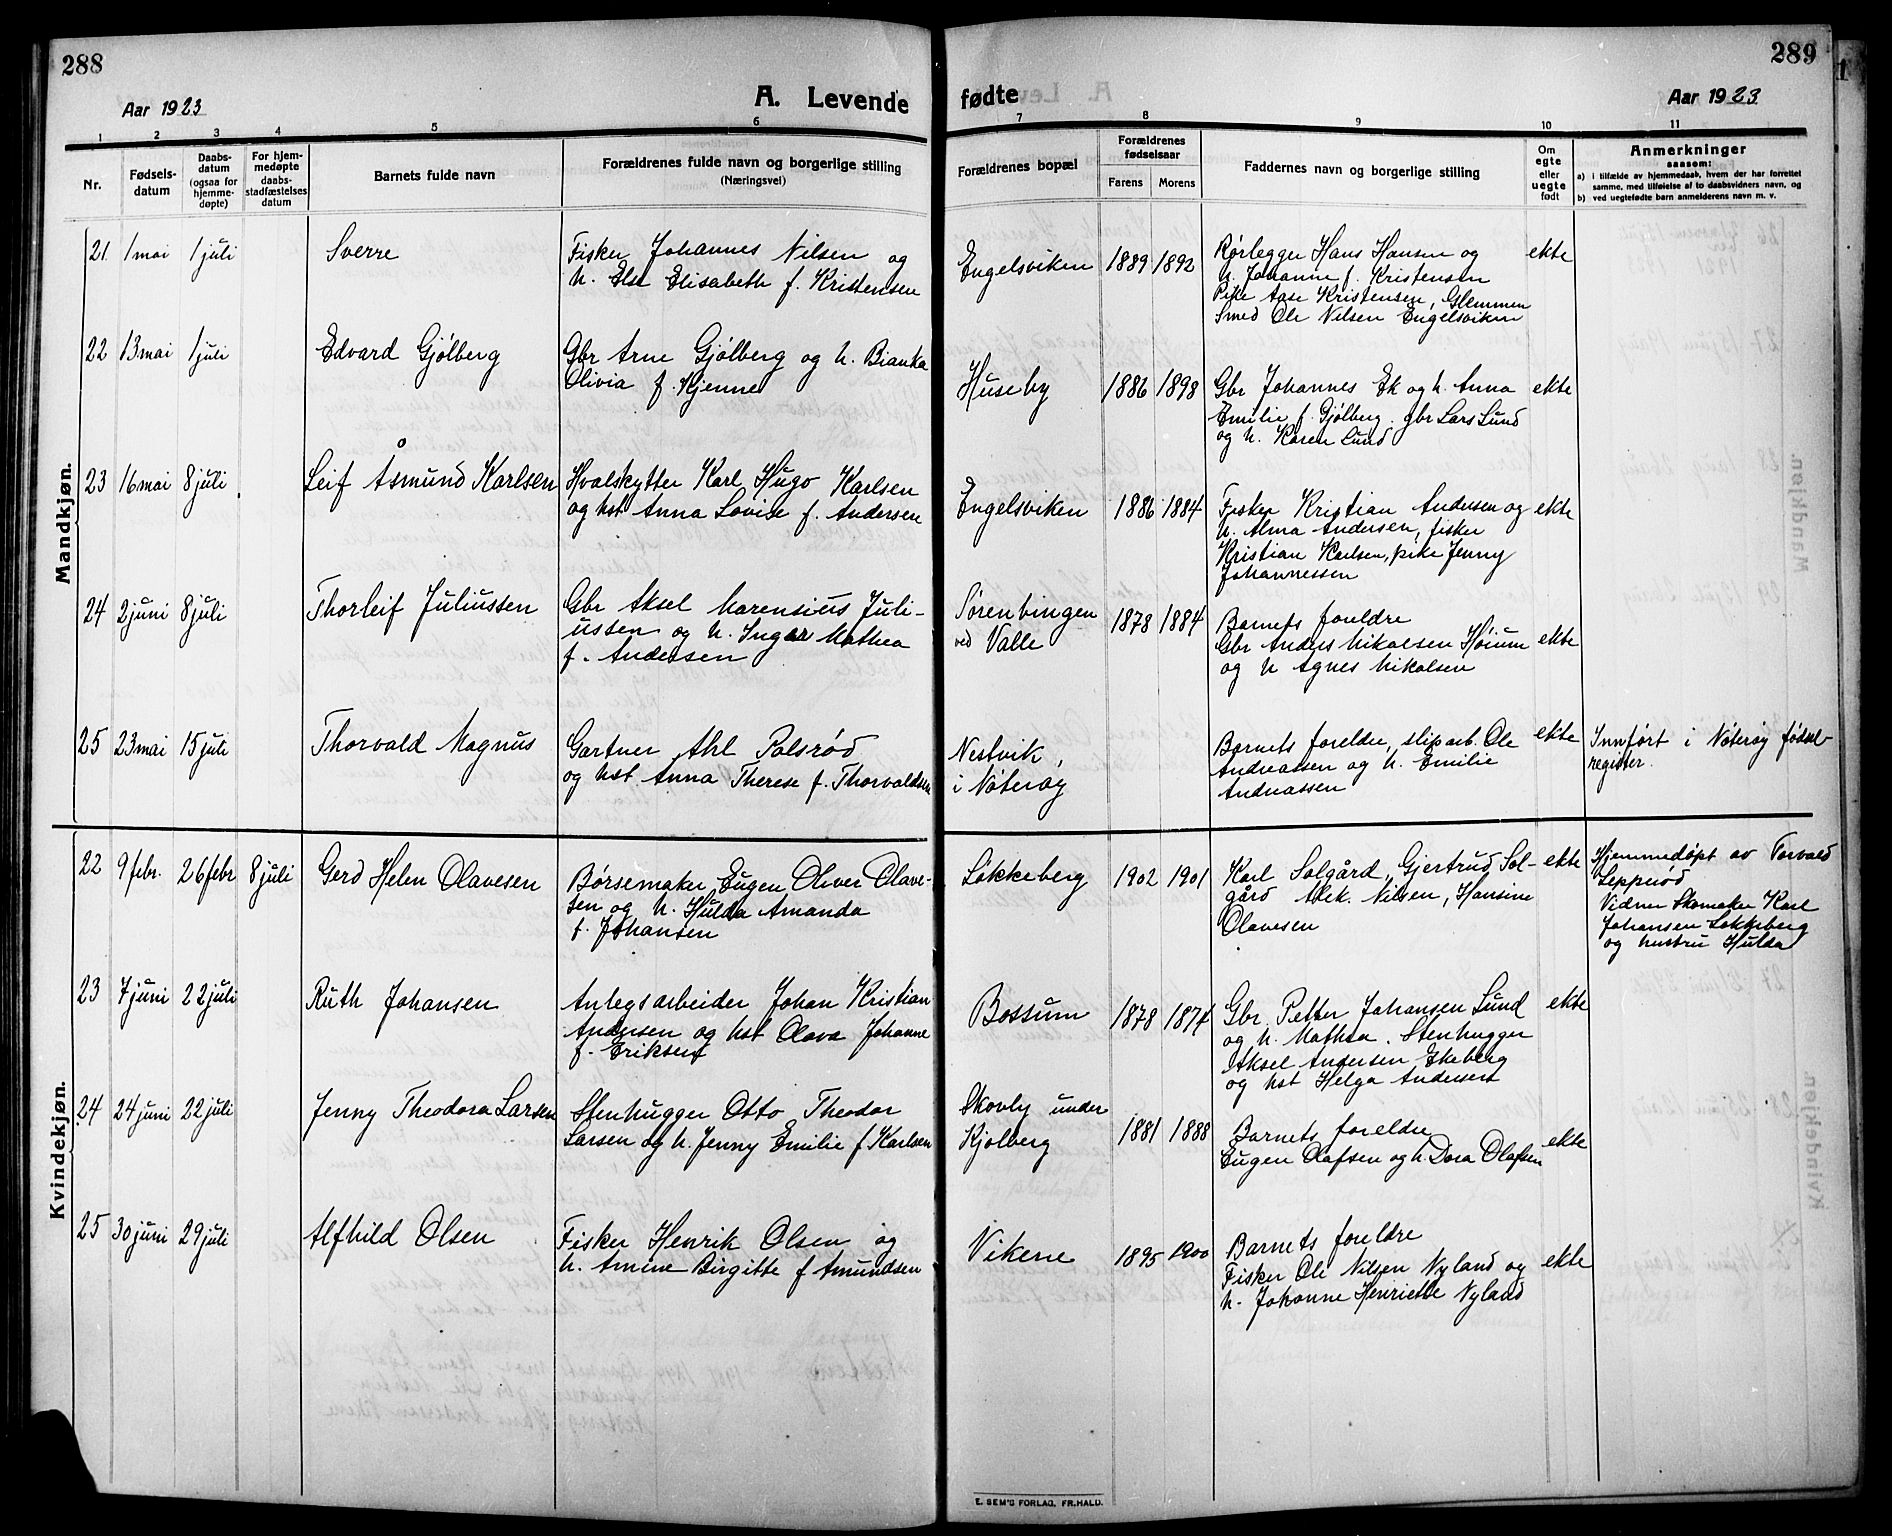 288
Aar 1923
A. Levende
1 2 3 4 5 6
Nr.
Fødsels-
datum
Daabs-
datum
(ogsaa for
hjemme-
døpte)
For hjem-
medøpte
daabs-
stadfæstelses
datum
Barnets fulde navn
Forældrenes fulde navn og borgerlige stilling
(Næringsvei)
Mandkjøn.
21. 1 mai 1 juli Sverre
Fisker Johannes Nilsen og
h. Else Elisabeth f. Kristensen
22 13 mai 1 juli Edvard Gjølberg
Gbr Arne Gjølberg og h. Bianka
Olivia f. Kjenne
23 16 mai 8 juli Leif Åsmund Karlsen
Hvalskytter Karl Hugo Karlsen
og hst Anna Lovise f. Andersen
24 2 juni 8 juli Thorleif Juliussen
Gbr Aksel Marensius Juli-
ussen og h. Ingar Mathea
f. Andersen
25 23 mai 15 juli Thorvald Magnus
Gartner Ahl Palsrød
og hst Anna Therese f. Thorvaldsen
Kvindekjøn.
22 9 febr. 26 febr 8 juli Gerd Helen Olavesen
Børsemaker Eugen Oliver Olave-
sen og h. Hulda Amanda
f. Johansen
23 7 juni 22 juli Ruth Johansen
Anlegsarbeider Johan Kristian
Andersen og hst Olava Johanne
f. Eriksen
24 24 juni 22 juli Jenny Theodora Larsen
Stenhugger Otto Theodor
Larsen og h. Jenny Emilie f Karlsen
25 30 juni 29 juli Alfhild Olsen
Fisker Henrik Olsen og
h. Amine Birgitte f Amundsen
289
fødte
Aar 1923
7 8 9 10 11
Forældrenes bopæl
Forældrenes
fødselsaar
Farens Morens
Faddernes navn og borgerlige stilling
Om
egte
eller
uegte
født
Anmerkninger
saasom:
a) i tilfælde av hjemmedaab, hvem der har forrettet
samme, med tilføielse af to daabsvidners navn, og
b) ved uegtefødte barn anmelderens navn m. v.
Engelsviken 1889 1892
Rørlegger Hans Hansen og
h. Johanne f. Kristensen
Pike Aase Kristensen, Glemmen
Smed Ole Nilsen Engelsviken
ekte
Huseby 1886 1898
Gbr Johannes Ek og h. Anna
Emilie f. Gjølberg. gbr Lars Lund
og h. Karen Lund
ekte
Engelsviken 1886 1884
Fisker Kristian Andersen og
h. Alma Andersen, fisker
Kristian Karlsen, pike Jenny
Johannessen
ekte
Sørenbingen
ved Valle
1878 1884
Barnets foreldre
Gbr Anders Nikolsen Høium
og h Agnes Nikolsen
ekte
Nestvik,
i Nøterøy
Barnets foreldre, sliparb. Ole
Andreassen og h. Emilie
Andreassen
ekte
Innført i Nøterøy fødsel-
register.
Løkkeberg 1902 1901
Karl Solgård, Gjertrud Sol-
gård Alek. Nilsen, Hansine
Olavesen
ekte
Hjemmedøpt av Torvald
Lepperød
Vidner Skomaker Karl
Johansen Løkkeberg
og hustru Hulda
Bossum 1878 1874
Gbr. Petter Johansen Lund
og h. Mathea. Stenhugger
Aksel Andersen Ekeberg
og hst Helga Andersen
ekte
Skovly under
Kjølberg
1881 1888
Barnets foreldre
Eugen Olafsen og h. Dora Olafsen
ekte
Vikene 1895 1900
Barnets foreldre
Fisker Ole Nilsen Nyland og
h. Johanne Henriette Nyland
ekte
E. SEM'S FORLAG, FR.HALD.